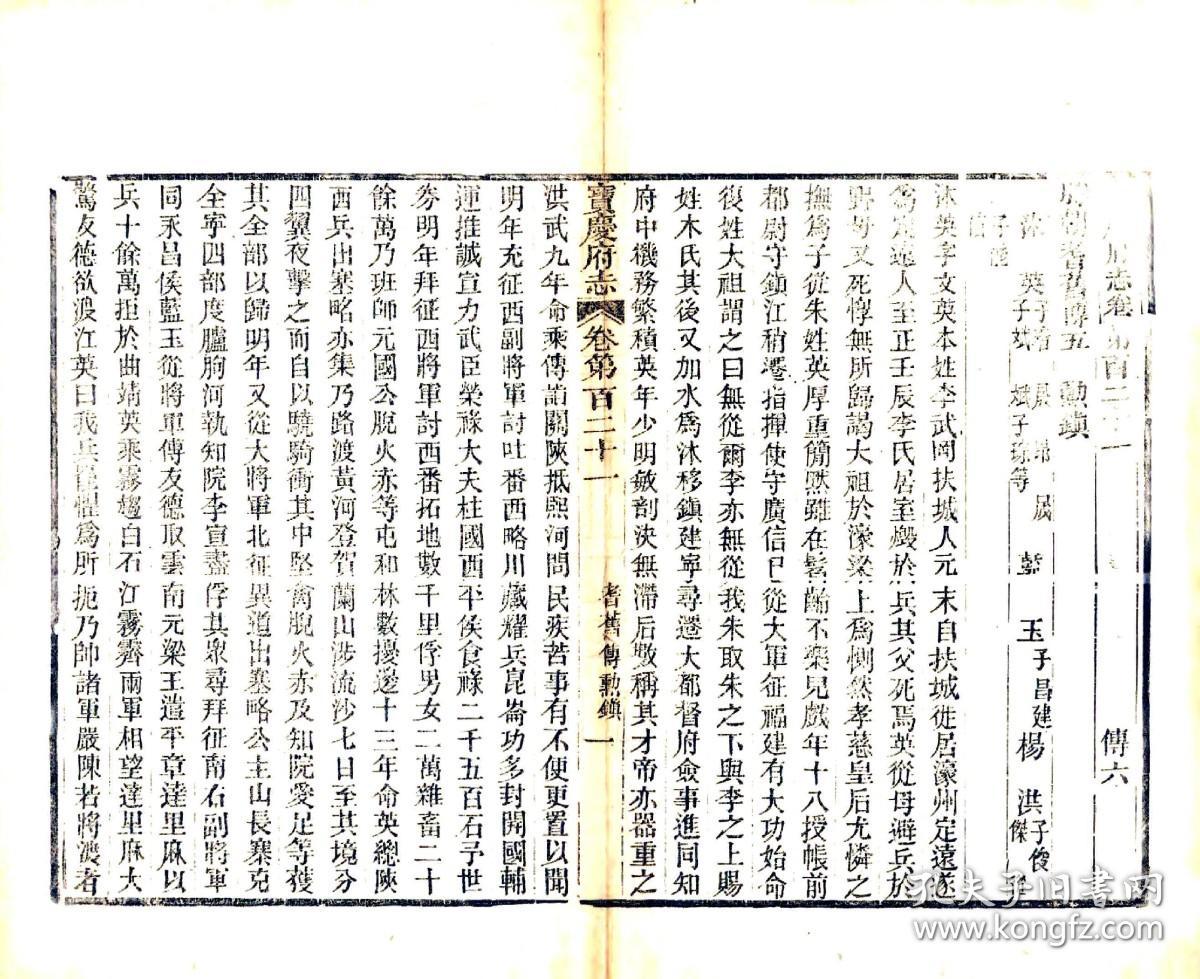 府志卷第百二十一 傳六
勳鎮
英 藍 玉 子昌建 楊 洪 子俊 傑
沐英字文英本姓李武岡扶城人元末自扶城徙居濠州定遠遂
爲定遠人至正壬辰李氏居室燬於兵其父死焉英從母避兵於
母又死惸無所歸謁大祖於濠梁上爲惻然孝慈皇后尤憐之
撫爲子從朱姓英厚重簡默雖在髫齠不樂兒戲年十八授帳前
都尉守鎮江稍遷指揮使守廣信已從大軍征福建有大功始命
復姓大祖謂之曰無從爾李亦無從我朱取朱之下與李之上賜
姓木氏其後又加水爲沐移鎮建寧尋遷大都督府僉事進同知
府中機務繁積英年少明敏剖決無滯后數稱其才帝亦器重之
寶慶府志 卷第百二十一 耆舊傳勳鎮 一
洪武九年命乘傳詣關陝抵熙河問民疾苦事有不便更置以聞
明年充征西副將軍討吐番西略川藏耀兵崑崙功多封開國輔
運推誠宣力武臣榮祿大夫柱國西平侯食祿二千五百石予世
券明年拜征西將軍討西番拓地數千里俘男女二萬雜畜二十
餘萬乃班師元國公脫火赤等屯和林數擾邊十三年命英總陝
西兵出塞略亦集乃路渡黃河登賀蘭山涉流沙七日至其境分
四翼夜擊之而自以驍騎衝其中堅禽脫火赤及知院愛足等獲
其全部以歸明年又從大將軍北征異道出塞略公主山長寨克
全寧四部度臚朐河執知院李宣盡俘其眾尋拜征南右副將軍
同永昌侯藍玉從將軍傅友德取雲南元梁王遣平章達里麻以
兵十餘萬拒於曲靖英乘霧趨白石江霧霽兩軍相望達里麻大
驚友德欲渡江英曰我兵罷懼爲所扼乃帥諸軍嚴陳若將渡者
孔夫子旧书网
www.kongfz.com